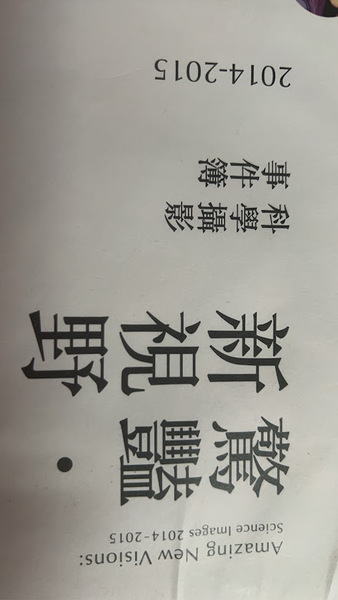 Amazing New Visions:
Science Images 2014-2015
驚豔・
新視野
科學攝影
事件簿
2014-2015